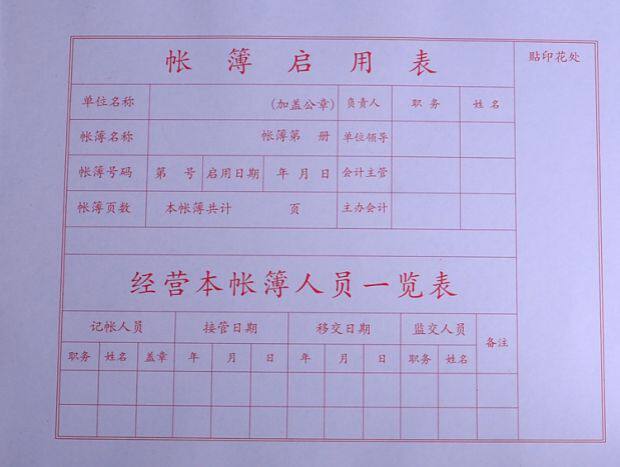 帐簿启用表
贴印花处
单位名称 (加盖公章) 负责人 职务 姓名
帐簿名称 帐簿第 册 单位领导
帐簿号码 第 号 启用日期 年 月 日 会计主管
帐簿页数 本帐簿共计 页 主办会计
经营本帐簿人员一览表
记帐人员 接管日期 移交日期 监交人员 备注
职务 姓名 盖章 年 月 日 年 月 日 职务 姓名